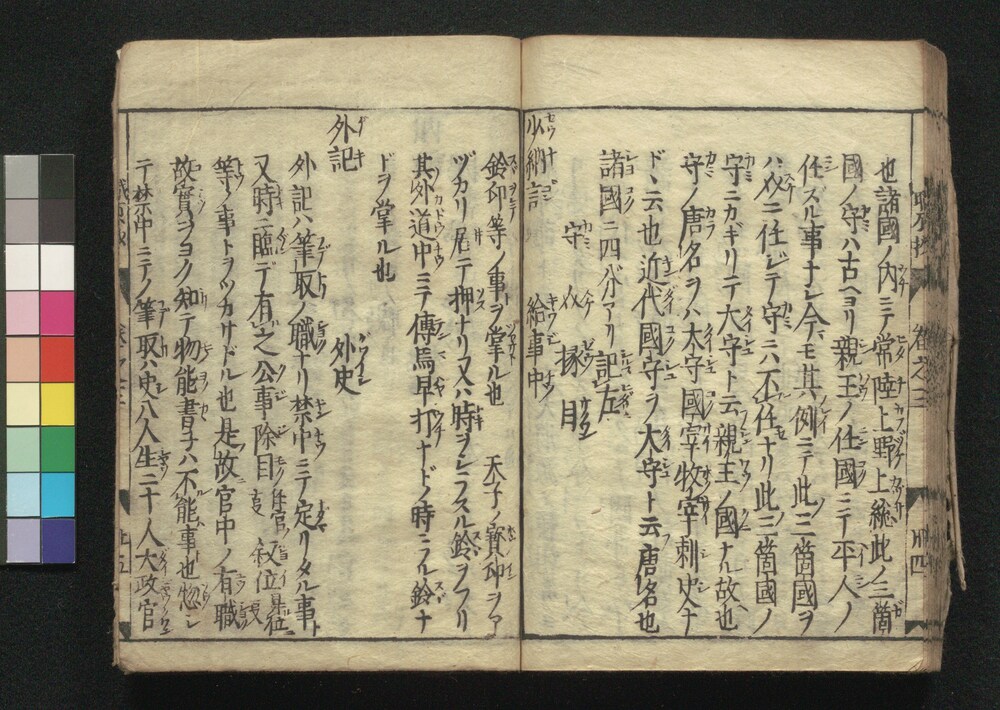 也諸國ノ内ニテ常陸上野上総此ノ三箇
國ノ守ハ古ヘヨリ親王ノ任國ニテ平人ノ
任スル事ナシ今モ其例ニテ此三箇國ヲ
ハ介ニ任ジテ守ニハ不任ナリ此三箇國ノ
守ニカギリテ大守ト云親王ノ國ナル故也
守ノ唐名ヲハ太守國宰牧宰刺史ナ
ドヽ云也近代國守ヲ大守ト云唐名也
諸國ニ四分アリ記左
守 介 掾 目
少納言 給事中
鈴印等ノ事ヲ掌ル也 天子ノ寳印ヲア
ヅカリ居テ押ナリ又ハ時ヲシラスル鈴ヲフリ
其外道中ニテ傳馬早打ナドノ時ニフル鈴ナ
ドヲ掌ル也
外記 外史
外記ハ筆取ノ職ナリ禁中ニテ定リタル事
又時ニ臨デ有之公事除目任官ノ叙位昇位
等ノ事トヲツカサドル也是故官中ノ有職
故實ヲヨク知テ物能書子ハ不能事也惣シ
テ禁中ニテノ筆取ハ史八人生二十人大政官